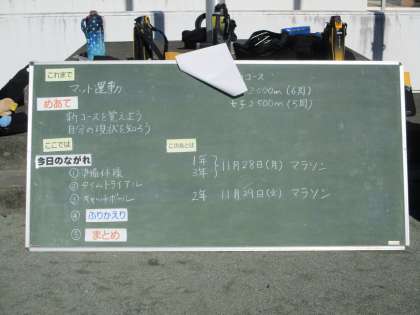 これまで
マット運動
コース
000m (6周)
女子2500m (5周)
めあて
新コースを覚えよう
自分の現状を知ろう
ここでは
このあとは
今日のながれ
1年
3年
11月28日(月) マラソン
① 準備体操
② タイムトライアル
③ キャッチボール
2年 11月29日(火) マラソン
④ ふりかえり
⑤ まとめ